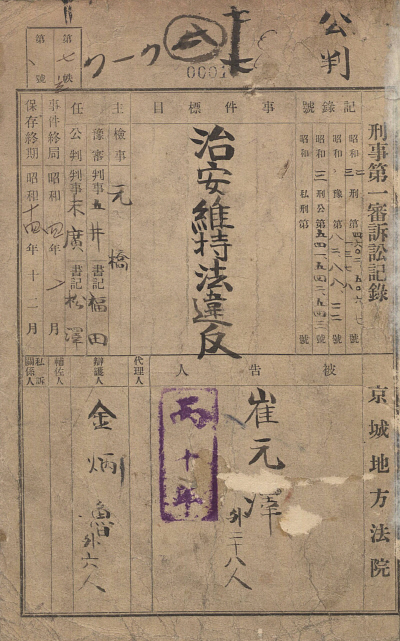 公判
7-7
0001
第七軼
第 號
刑事第一審訴訟記錄
京城地方法院
記錄號
昭和 刑第 號
昭和 豫第 號
昭和三刑公第五四一、五四二、五四三號
昭和 私刑第 號
事件標目
治安維持法違反
主任
檢事 元橋
豫審判事 五井 書記 福田
公判判事 末廣 書記 松澤
事件終局 昭和 四年 月
保存終期 昭和 十四年 十二月
被告人
崔元澤
外二十八人
丙十年
代理人
辯護人
金炳魯
外六人
輔佐人
私訴關係人